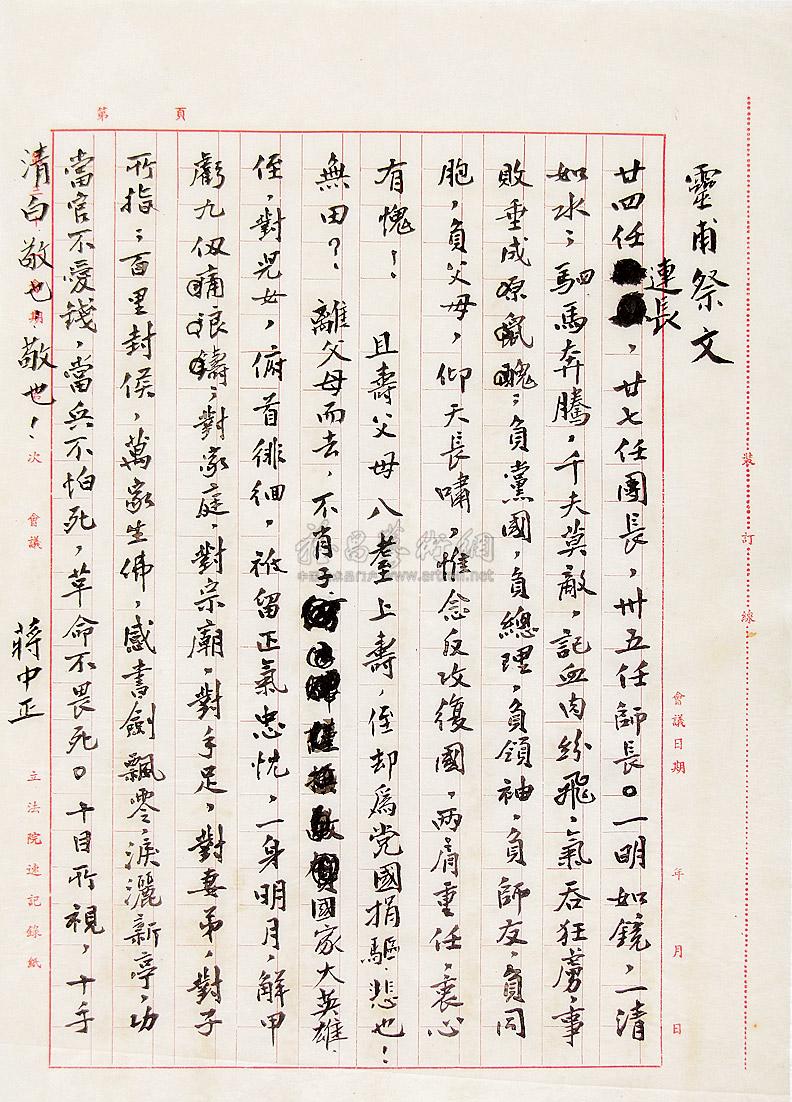 靈甫祭文
廿四任連長，廿七任團長，卅五任師長。一明如鏡，一清
如水；駟馬奔騰，千夫莫敵，記血肉紛飛，氣吞狂虜，事
敗垂成原鼠醜；負黨國，負總理，負領袖，負師友，負同
胞，負父母，仰天長嘯，惟念反攻復國，兩肩重任，衷心
有愧！且壽父母八耋上壽，侄却為党國捐驅，悲也！
無田？離父母而去，不肖子國家大英雄
侄，對兒女，俯首徘徊，祗留正氣忠忱，一身明月，解甲
虧九仭痛浪鑄；對家庭，對宗廟，對手足，對妻弟，對子
所指；百里封侯，萬家生佛，感書劍飄零，淚灑新亭，功
當官不愛錢，當兵不怕死，革命不畏死。十目所視，十手
清白敬也，敬也！
蔣中正
第 頁
裝訂線
會議日期 年 月 日
期 次 會議
立法院速記錄紙
www.artxun.net